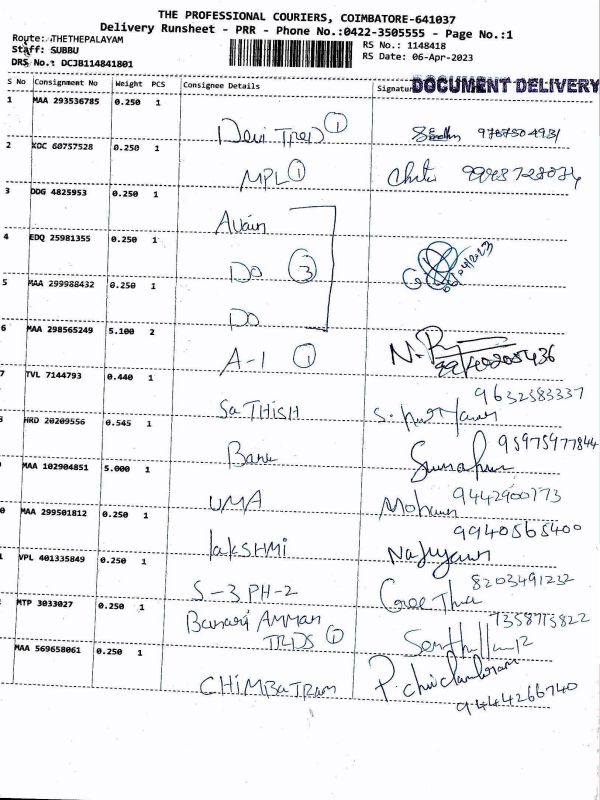 THE PROFESSIONAL COURIERS, COIMBATORE-641037
Delivery Runsheet - PRR - Phone No.:0422-3505555 - Page No.:1
Route: THETHEPALAYAM
Staff: SUBBU
DRS No.: DCJB114841801
RS No.: 1148418
RS Date: 06-Apr-2023
S No Consignment No Weight PCS Consignee Details Signature
DOCUMENT DELIVERY
1 MAA 293536785 0.250 1 Devi TReD 1
2 KOC 60757528 0.250 1 MPL 1
3 DDG 4825953 0.250 1
4 EDQ 25981355 0.250 1 DO 3
5 MAA 299988432 0.250 1 DO
6 MAA 298565249 5.100 2 A-1 1
7 TVL 7144793 0.440 1 SaTHISH 9632583337
HRD 20209556 0.545 1 Banu 95975977844
MAA 102904851 5.000 1 UMA Mohan 9442900773
0 MAA 299501812 0.250 1 lakSHMi 9940565400
1 VPL 401335849 0.250 1 S-3 PH-2 8203491232
MTP 3033027 0.250 1 Banari AMMAN TRDS 1 7358715822
MAA 569658061 0.250 1 CHiMBaTRam P. chidambaram 9444266740